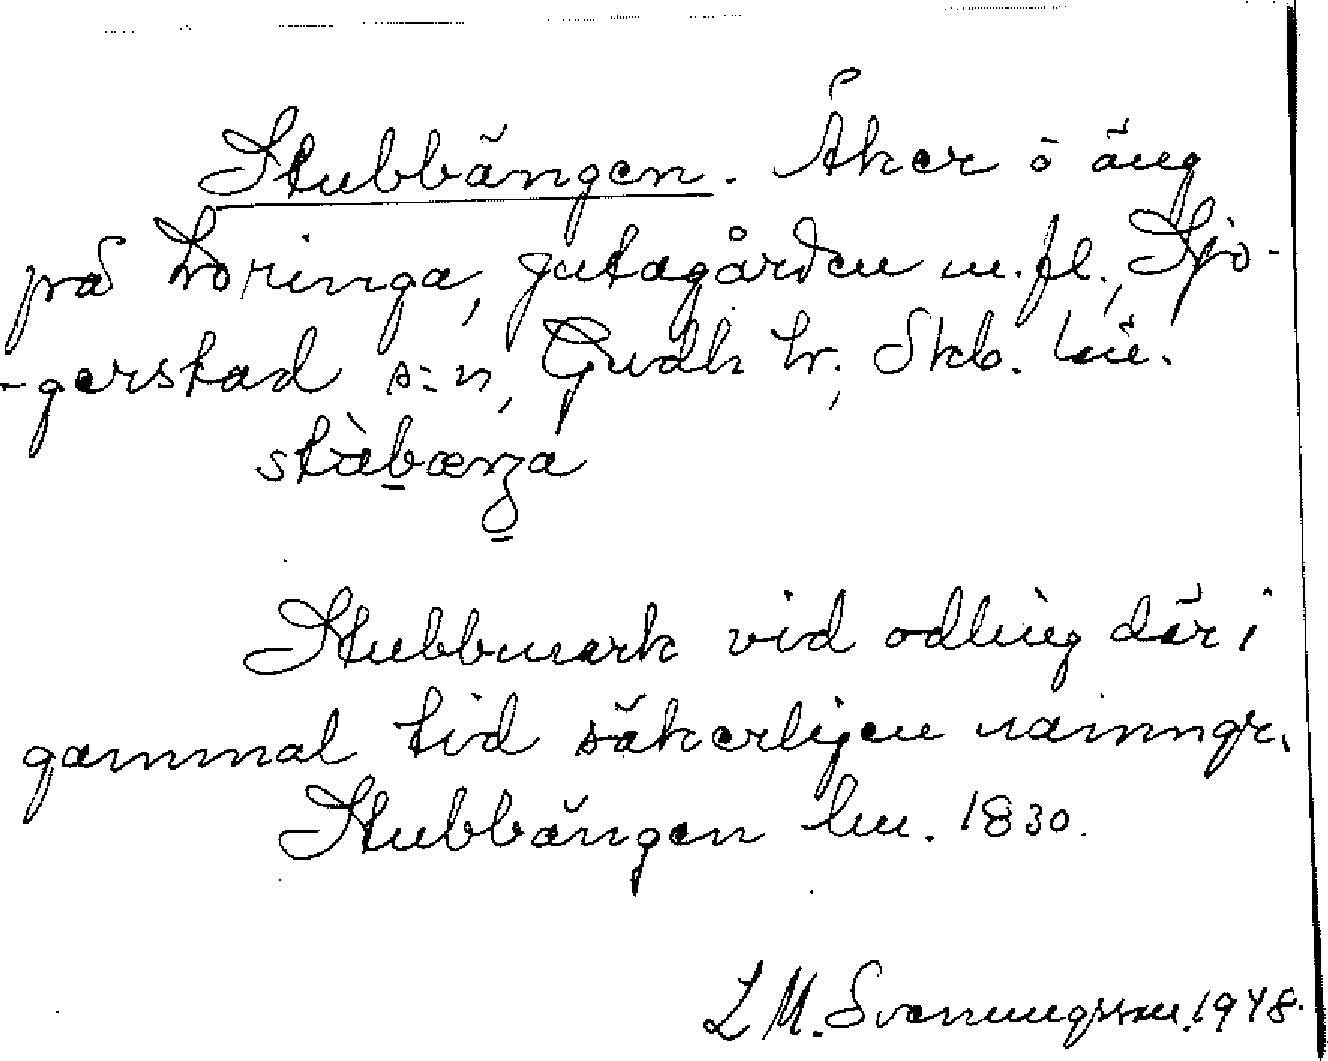 Stubbängen. Åker o äng
på Toringa, Jutagården m.fl., Sjo-
-gerstad s:n, Gudh hr., Skb. län.
stàbæŋa
Stubbmark vid odling där i
gammal tid säkerligen namngr.
Stubbängen lm. 1830.
L M. Svenungsson. 1948.